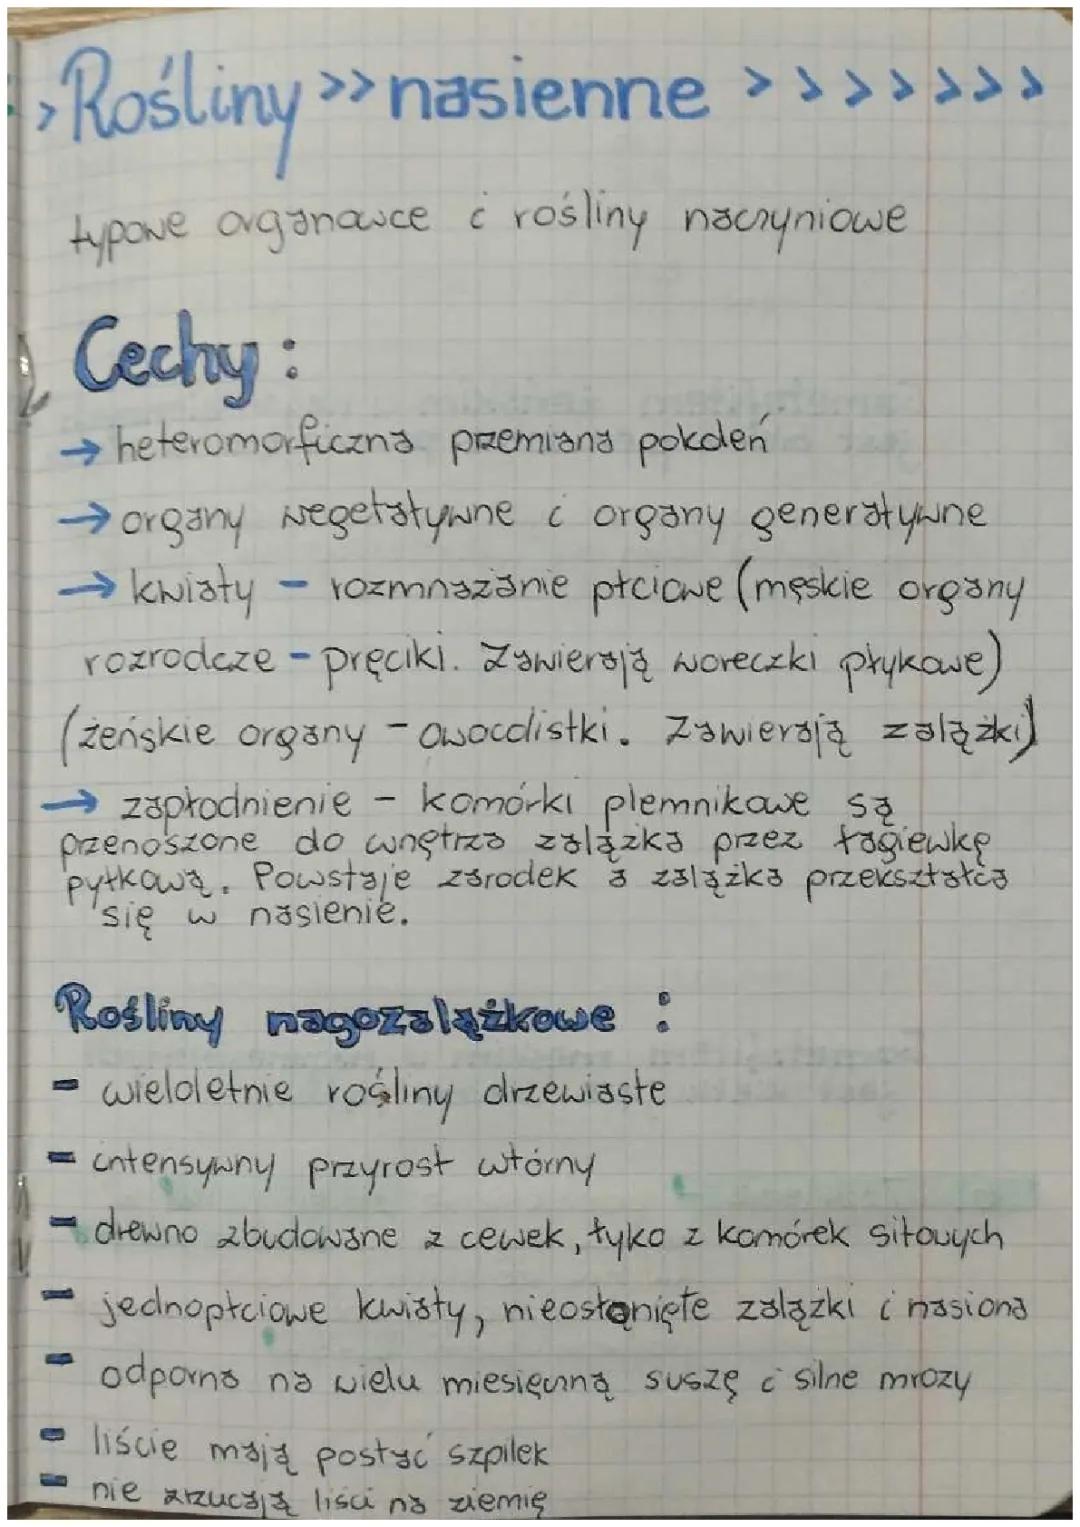 > Rośliny >> nasienne > > > > > > >
typowe organowce i rośliny naczyniowe
Cechy :
→ heteromorficzna przemiana pokoleń
→ organy wegetatywne i organy generatywne
→ kwiaty - rozmnażanie płciowe (męskie organy
rozrodcze - pręciki. Zawierają woreczki płykowe)
(żeńskie organy - owocolistki. Zawierają zalążki)
→ zapłodnienie - komórki plemnikowe są
przenoszone do wnętrza zalązka przez łagiewkę
pyłkową. Powstaje zarodek a zalążka przekształca
się w nasienie.
Rośliny nagozalążkowe :
- wieloletnie rośliny drzewiaste
- intensywny przyrost wtórny
- drewno zbudowane z cewek, łyko z komórek sitowych
- jednopłciowe kwiaty, nieosłonięte zalązki i nasiona
- odporna na wielu miesięczną suszę i silne mrozy
- liście mają postać szpilek
- nie zrzucają liści na ziemię